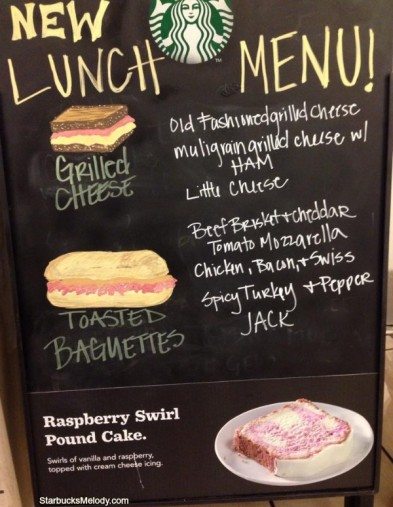 NEW
LUNCH MENU!
Grilled
CHEESE
Old Fashioned grilled cheese
muligrain grilled cheese w/
HAM
Little Cheese
TOASTED
BAGUETTES
Beef Brisket + cheddar
Tomato Mozzarella
Chicken, Bacon, + Swiss
Spicy Turkey + Pepper
JACK
Raspberry Swirl
Pound Cake.
Swirls of vanilla and raspberry,
topped with cream cheese icing.
StarbucksMelody.com